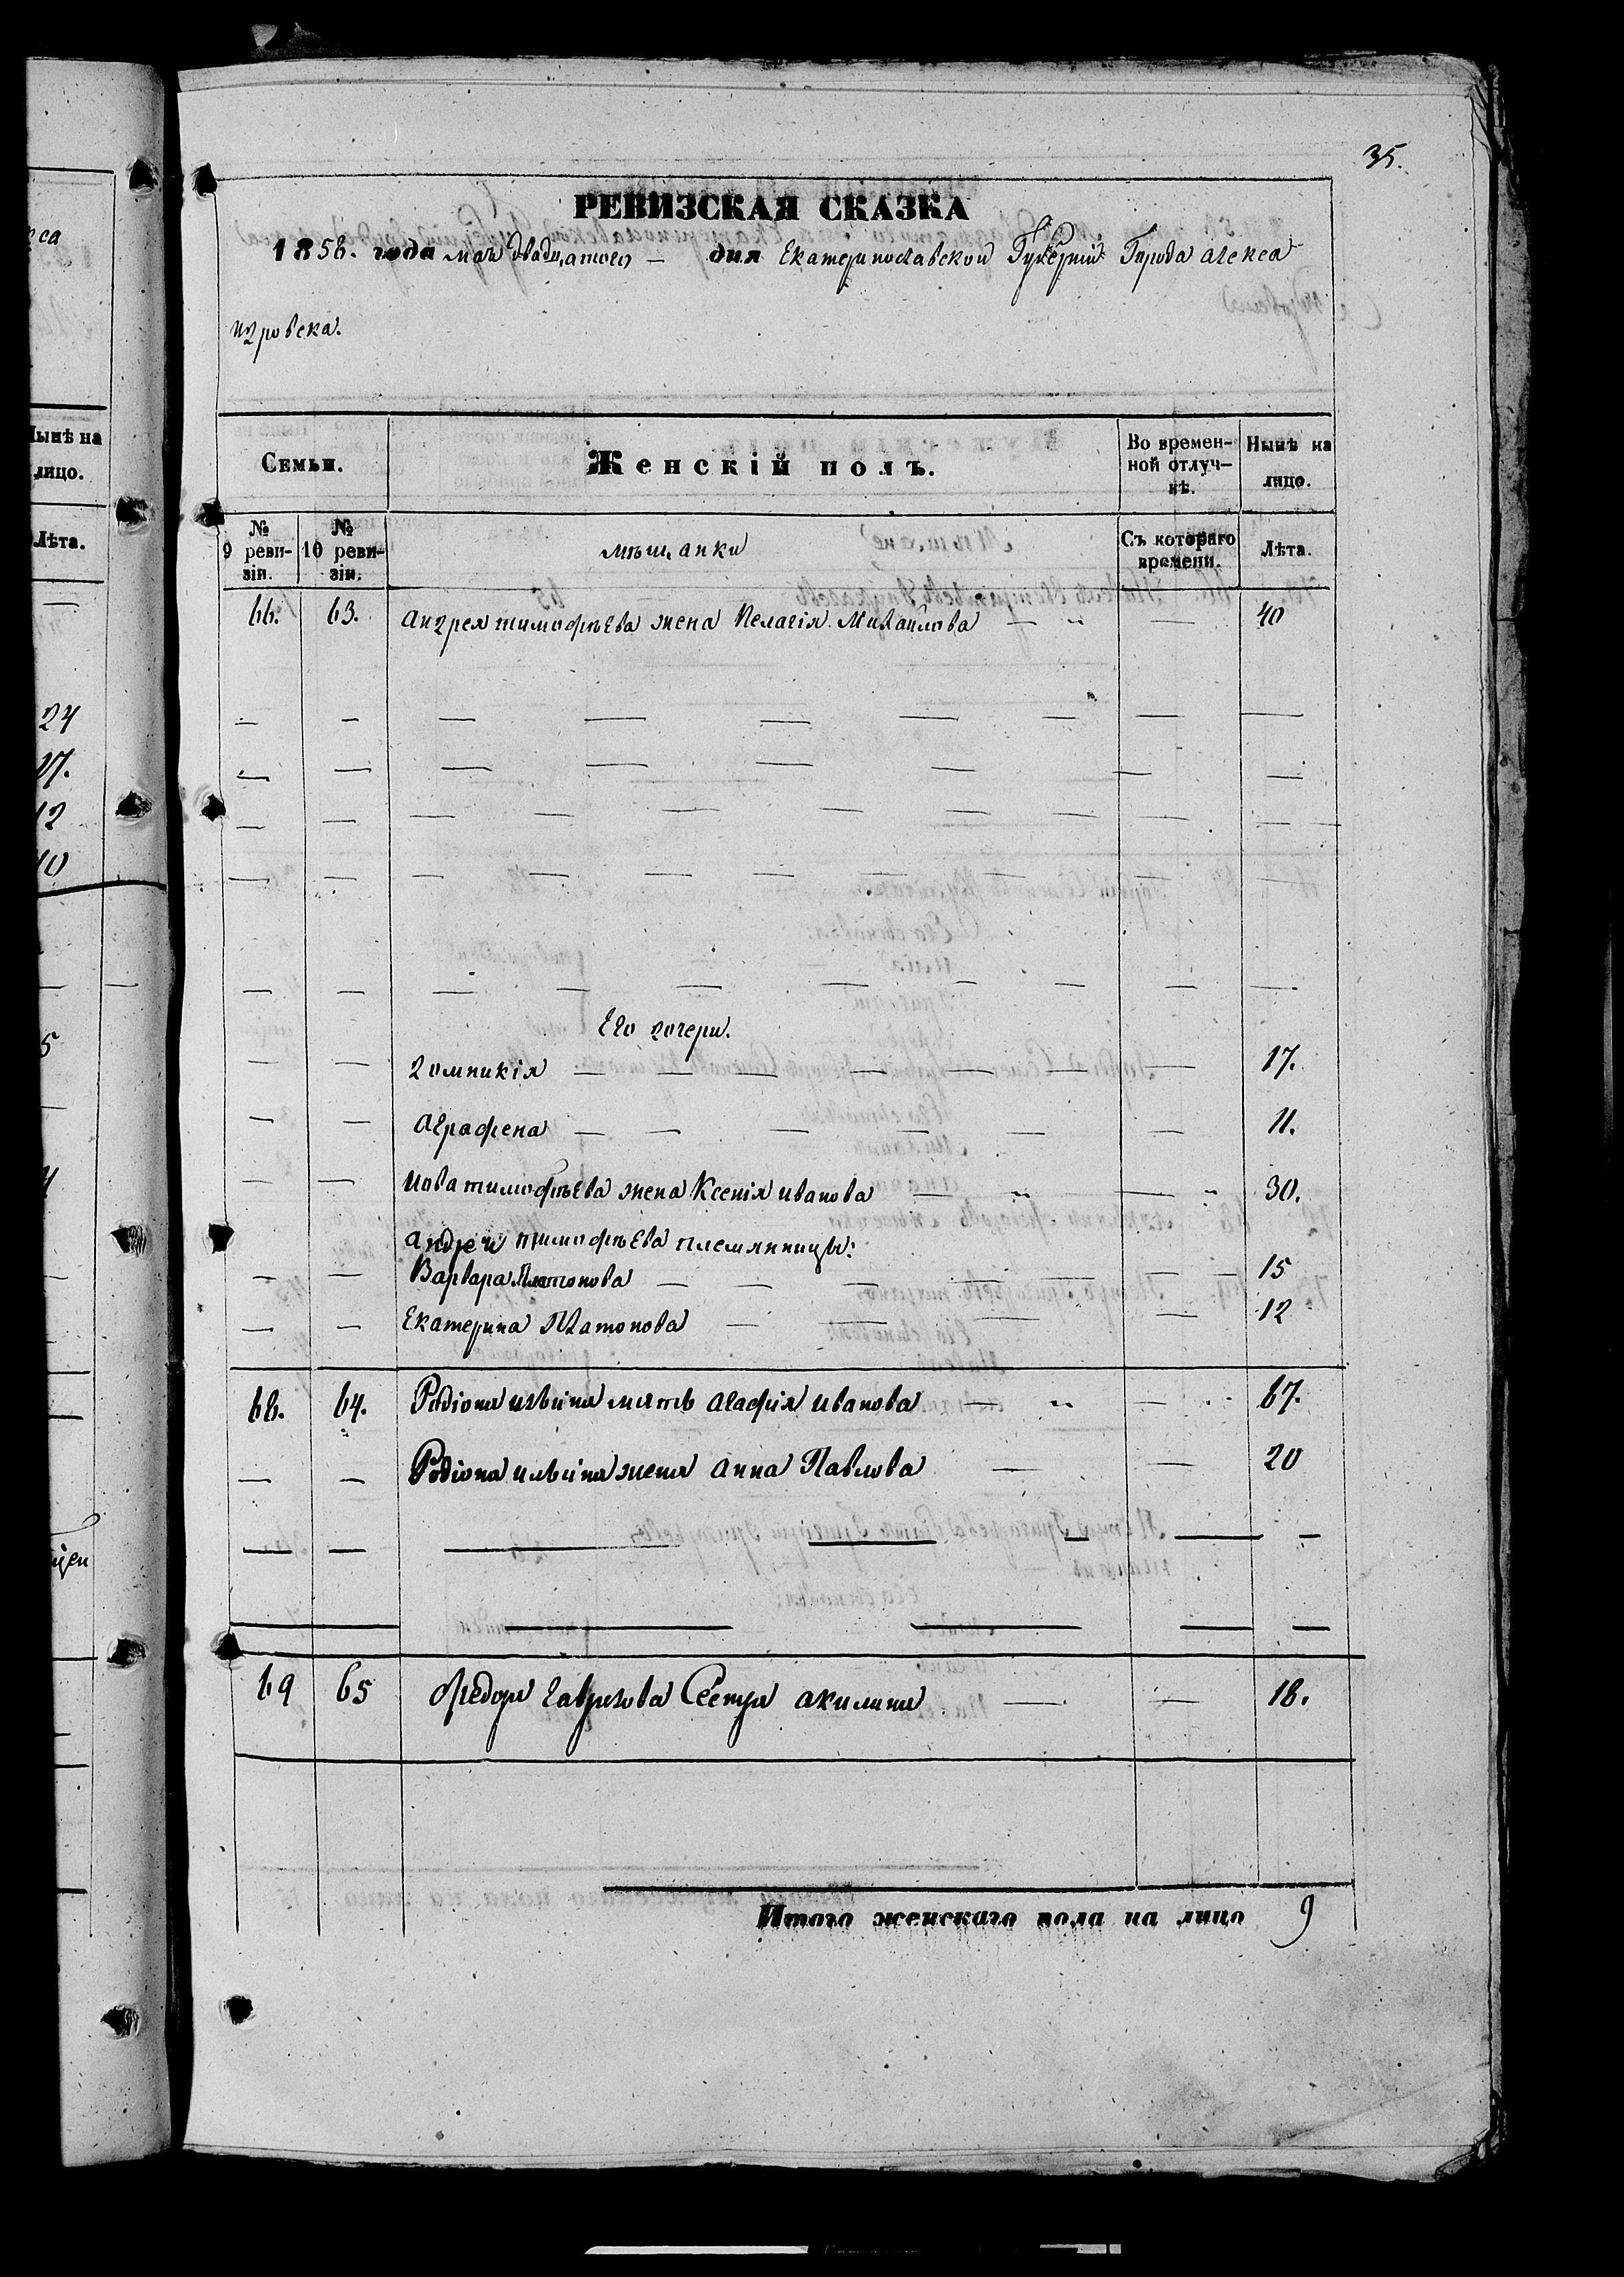 35.
РЕВИЗСКАЯ СКАЗКА
1858. года мая двадцатого — дня Екатеринославской Губерніи Города Алекса
ндровска.
Семьи. Женскій полъ. Во времен-ной отлуч-кѣ. Нынѣ на лицо.
№ 9 реви-зіи. № 10 реви-зіи. мѣщанки Съ котораго времени. Лѣта.
66. 63. Андрея тимофѣева жена Пелагія Михайлова — " — 40
Его дочери.
— — Домникія — 17.
— — Аграфена — 11.
— — Иова тимофѣева жена Ксенія иванова — " — " 30.
Андрея тимофѣева племянницы:
— — Варвара Платонова — 15
— — Екатерина Платонова — 12
68. 64. Родіона ильина мать Агафія иванова — " — 67.
— — Родіона ильина жена Анна Павлова — 20
69 65 Федора гаврилова Сестра акилина — 18.
Итого женскаго пола на лицо 9
са
Нынѣ на
лицо.
Лѣта.
24
17.
12
10
5
4